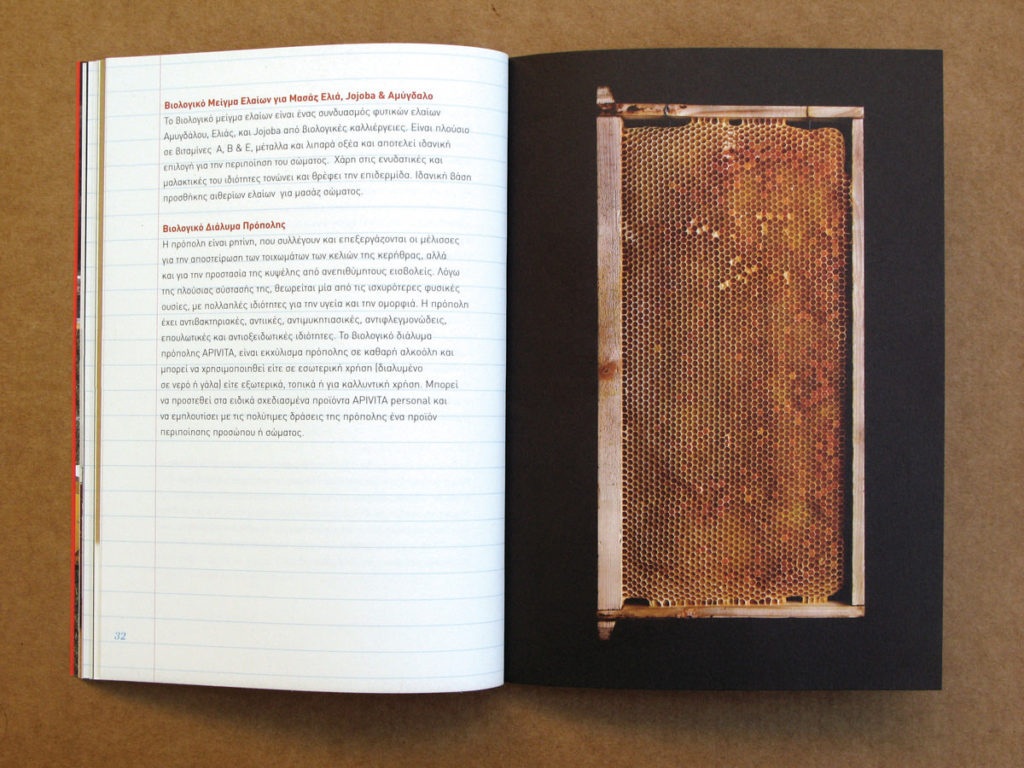 Βιολογικό Μείγμα Ελαίων για Μασάζ Ελιά, Jojoba & Αμύγδαλο
Το βιολογικό μείγμα ελαίων είναι ένας συνδυασμός φυτικών ελαίων
Αμυγδάλου, Ελιάς, και Jojoba από βιολογικές καλλιέργειες. Είναι πλούσιο
σε βιταμίνες A, B & E, μέταλλα και λιπαρά οξέα και αποτελεί ιδανική
επιλογή για την περιποίηση του σώματος. Χάρη στις ενυδατικές και
μαλακτικές του ιδιότητες τονώνει και θρέφει την επιδερμίδα. Ιδανική βάση
προσθήκης αιθερίων ελαίων για μασάζ σώματος.
Βιολογικό Διάλυμα Πρόπολης
Η πρόπολη είναι ρητίνη, που συλλέγουν και επεξεργάζονται οι μέλισσες
για την αποστείρωση των τοιχωμάτων των κελιών της κερήθρας, αλλά
και για την προστασία της κυψέλης από ανεπιθύμητους εισβολείς. Λόγω
της πλούσιας σύστασής της, θεωρείται μία από τις ισχυρότερες φυσικές
ουσίες, με πολλαπλές ιδιότητες για την υγεία και την ομορφιά. Η πρόπολη
έχει αντιβακτηριακές, αντιικές, αντιμυκητιασικές, αντιφλεγμονώδεις,
επουλωτικές και αντιοξειδωτικές ιδιότητες. Το βιολογικό διάλυμα
πρόπολης APIVITA, είναι εκχύλισμα πρόπολης σε καθαρή αλκοόλη και
μπορεί να χρησιμοποιηθεί είτε σε εσωτερική χρήση (διαλυμένο
σε νερό ή γάλα) είτε εξωτερικά, τοπικά ή για καλλυντική χρήση. Μπορεί
να προστεθεί στα ειδικά σχεδιασμένα προϊόντα APIVITA personal και
να εμπλουτίσει με τις πολύτιμες δράσεις της πρόπολης ένα προϊόν
περιποίησης προσώπου ή σώματος.
32